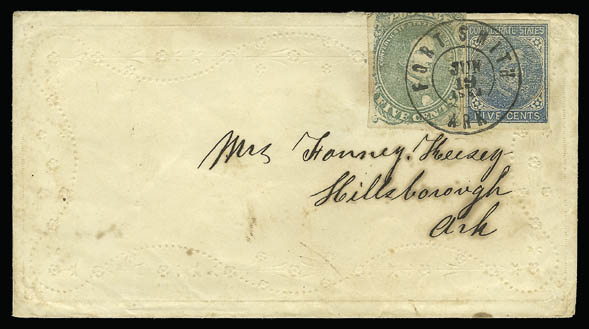 FIVE CENTS
CONFEDERATE STATES
FIVE CENTS
FORT SMITH
JUN
ARK
Mrs Fanney. Keesey
Hillsborough
Ark